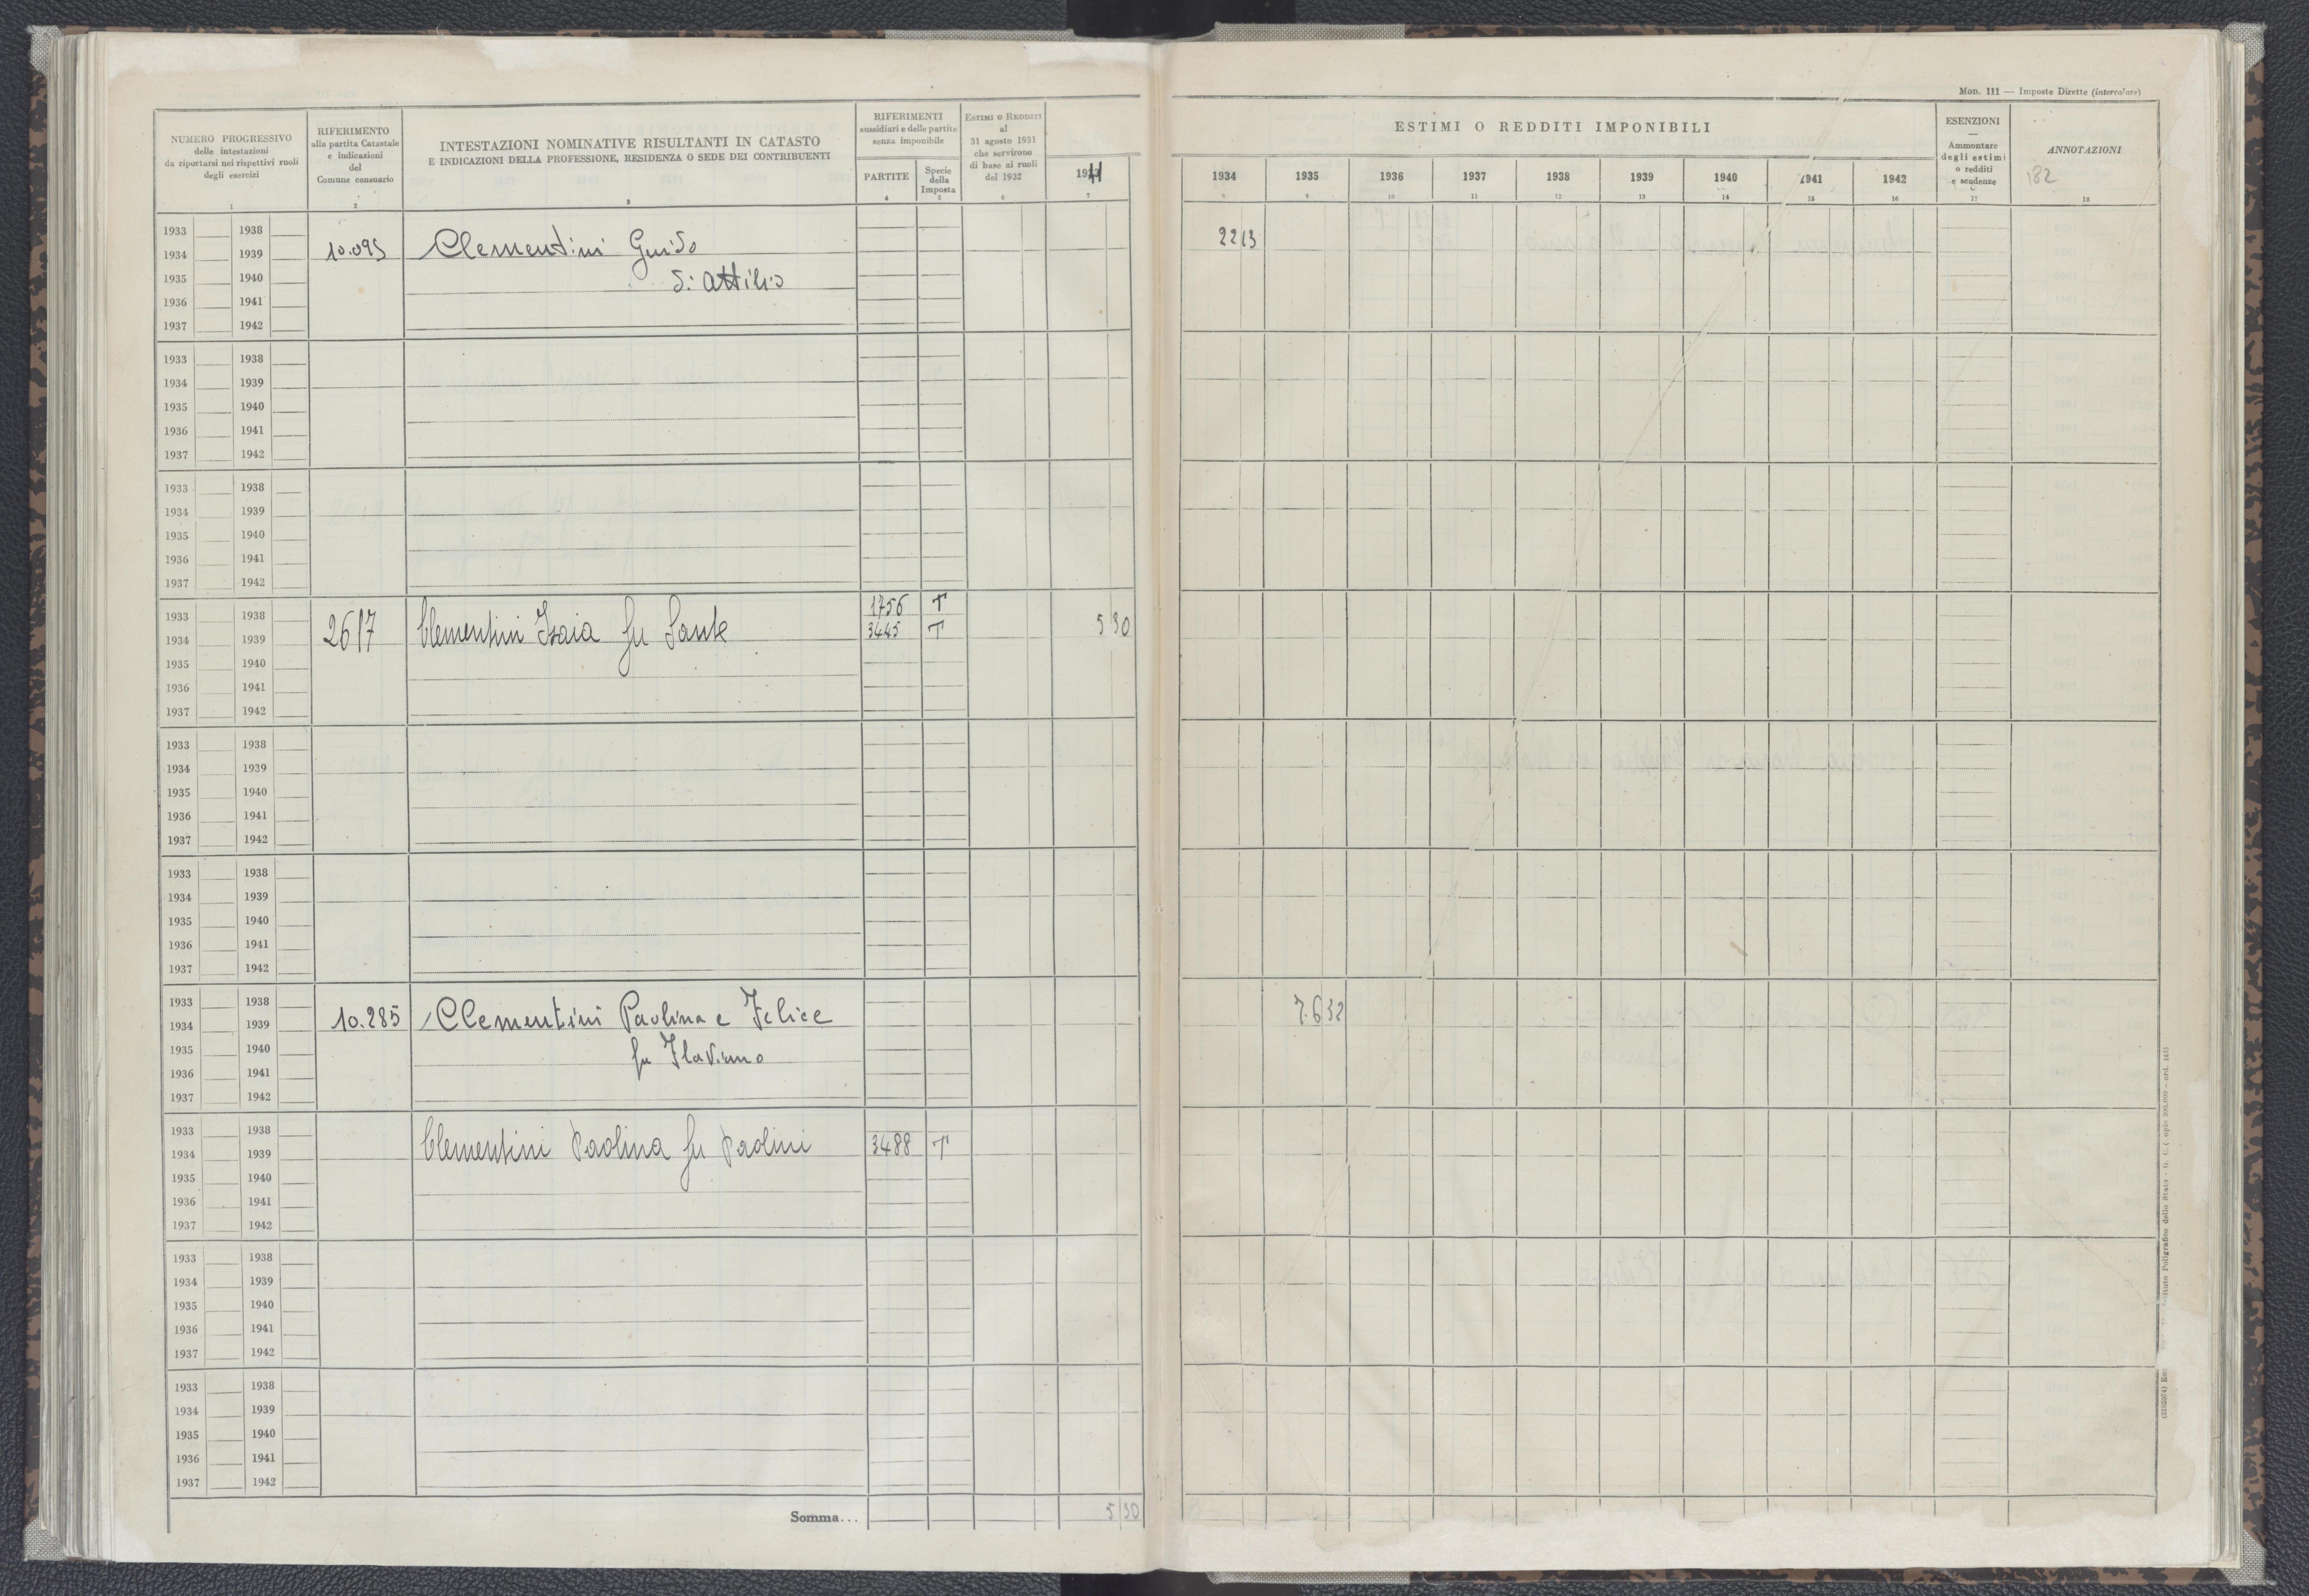 Mod. 111 — Imposte Dirette (intercalare)
NUMERO PROGRESSIVO
delle intestazioni
da riportarsi nei rispettivi ruoli
degli esercizi
1
RIFERIMENTO
alla partita Catastale
e indicazioni
del
Comune censuario
2
INTESTAZIONI NOMINATIVE RISULTANTI IN CATASTO
E INDICAZIONI DELLA PROFESSIONE, RESIDENZA O SEDE DEI CONTRIBUENTI
3
RIFERIMENTI
sussidiari e delle partite
senza imponibile
PARTITE
4
Specie
della
Imposta
5
ESTIMI O REDDITI
al
31 agosto 1931
che servirono
di base ai ruoli
del 1932
6
7
ESTIMI O REDDITI IMPONIBILI
1934 1935 1936 1937 1938 1939 1940 1941 1942
8 9 10 11 12 13 14 15 16
ESENZIONI
—
Ammontare
degli estimi
o redditi
e scadenze
17
ANNOTAZIONI
182
18
1933 1938
1934 1939 10.095 Clementini Guido 22 13
1935 1940 di Attilio
1936 1941
1937 1942
1933 1938
1934 1939
1935 1940
1936 1941
1937 1942
1933 1938
1934 1939
1935 1940
1936 1941
1937 1942
1933 1938 1756 T
1934 1939 2617 Clementini Isaia fu Sante 3445 T 5 30
1935 1940
1936 1941
1937 1942
1933 1938
1934 1939
1935 1940
1936 1941
1937 1942
1933 1938
1934 1939
1935 1940
1936 1941
1937 1942
1933 1938
1934 1939 10.285 Clementini Paolina e Felice 7.6 32
1935 1940 fu Flaviano
1936 1941
1937 1942
1933 1938
1934 1939 Clementini Paolina fu Paolini 3488 T
1935 1940
1936 1941
1937 1942
1933 1938
1934 1939
1935 1940
1936 1941
1937 1942
1933 1938
1934 1939
1935 1940
1936 1941
1937 1942
Somma... 5 30